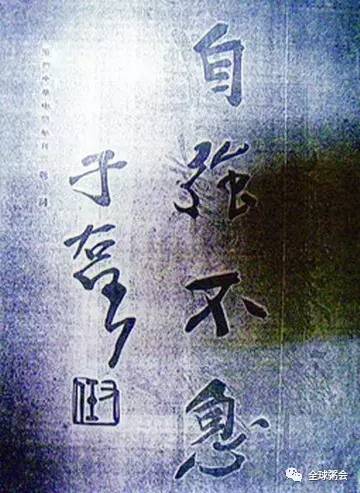 自強不息
于右任
全球粥会